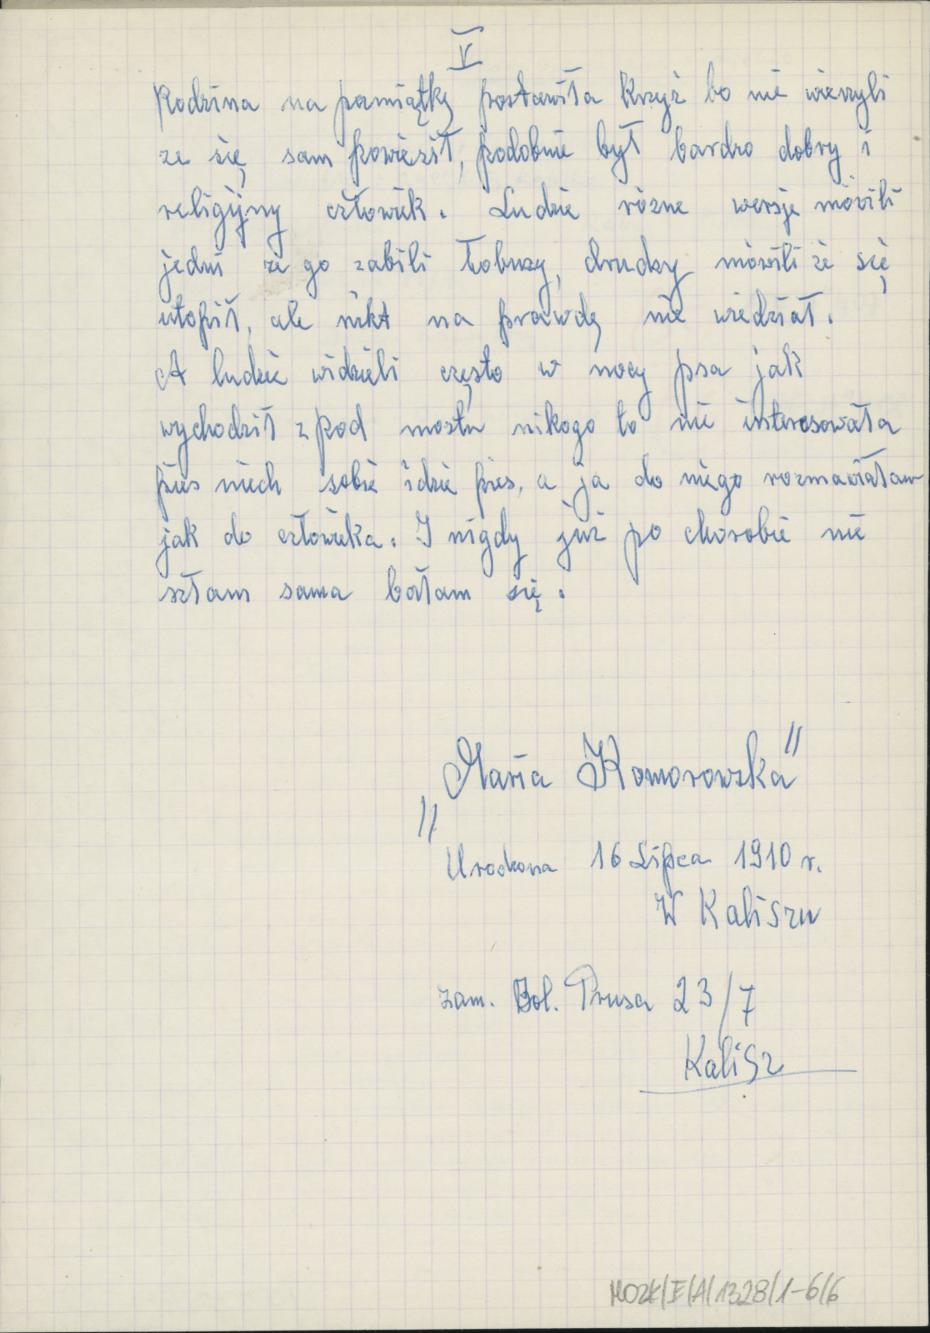 V
Rodzina na pamiątkę postawiła Krzyż bo nie wierzyli
ze się sam powiesił, podobnie był bardzo dobry i
religijny człowiek. Ludzie rózne wersje mówili
jedni że go zabili Łobuzy, drudzy mówili że się
utopił, ale nikt na prawdę nie wiedział.
A ludzie widzieli często w nocy psa jak
wychodził z pod mostu nikogo to nie interesowała
pies niech sobie idzie pies, a ja do niego rozmawiałam
jak do człowieka. I nigdy już po chorobie nie
szłam sama bałam się.
"Maria Komorowska"
Urodzona 16 Lipca 1910 r.
W Kaliszu
zam. Bol. Prusa 23/7
Kalisz
MOZK/E/A/1328/1-6/6